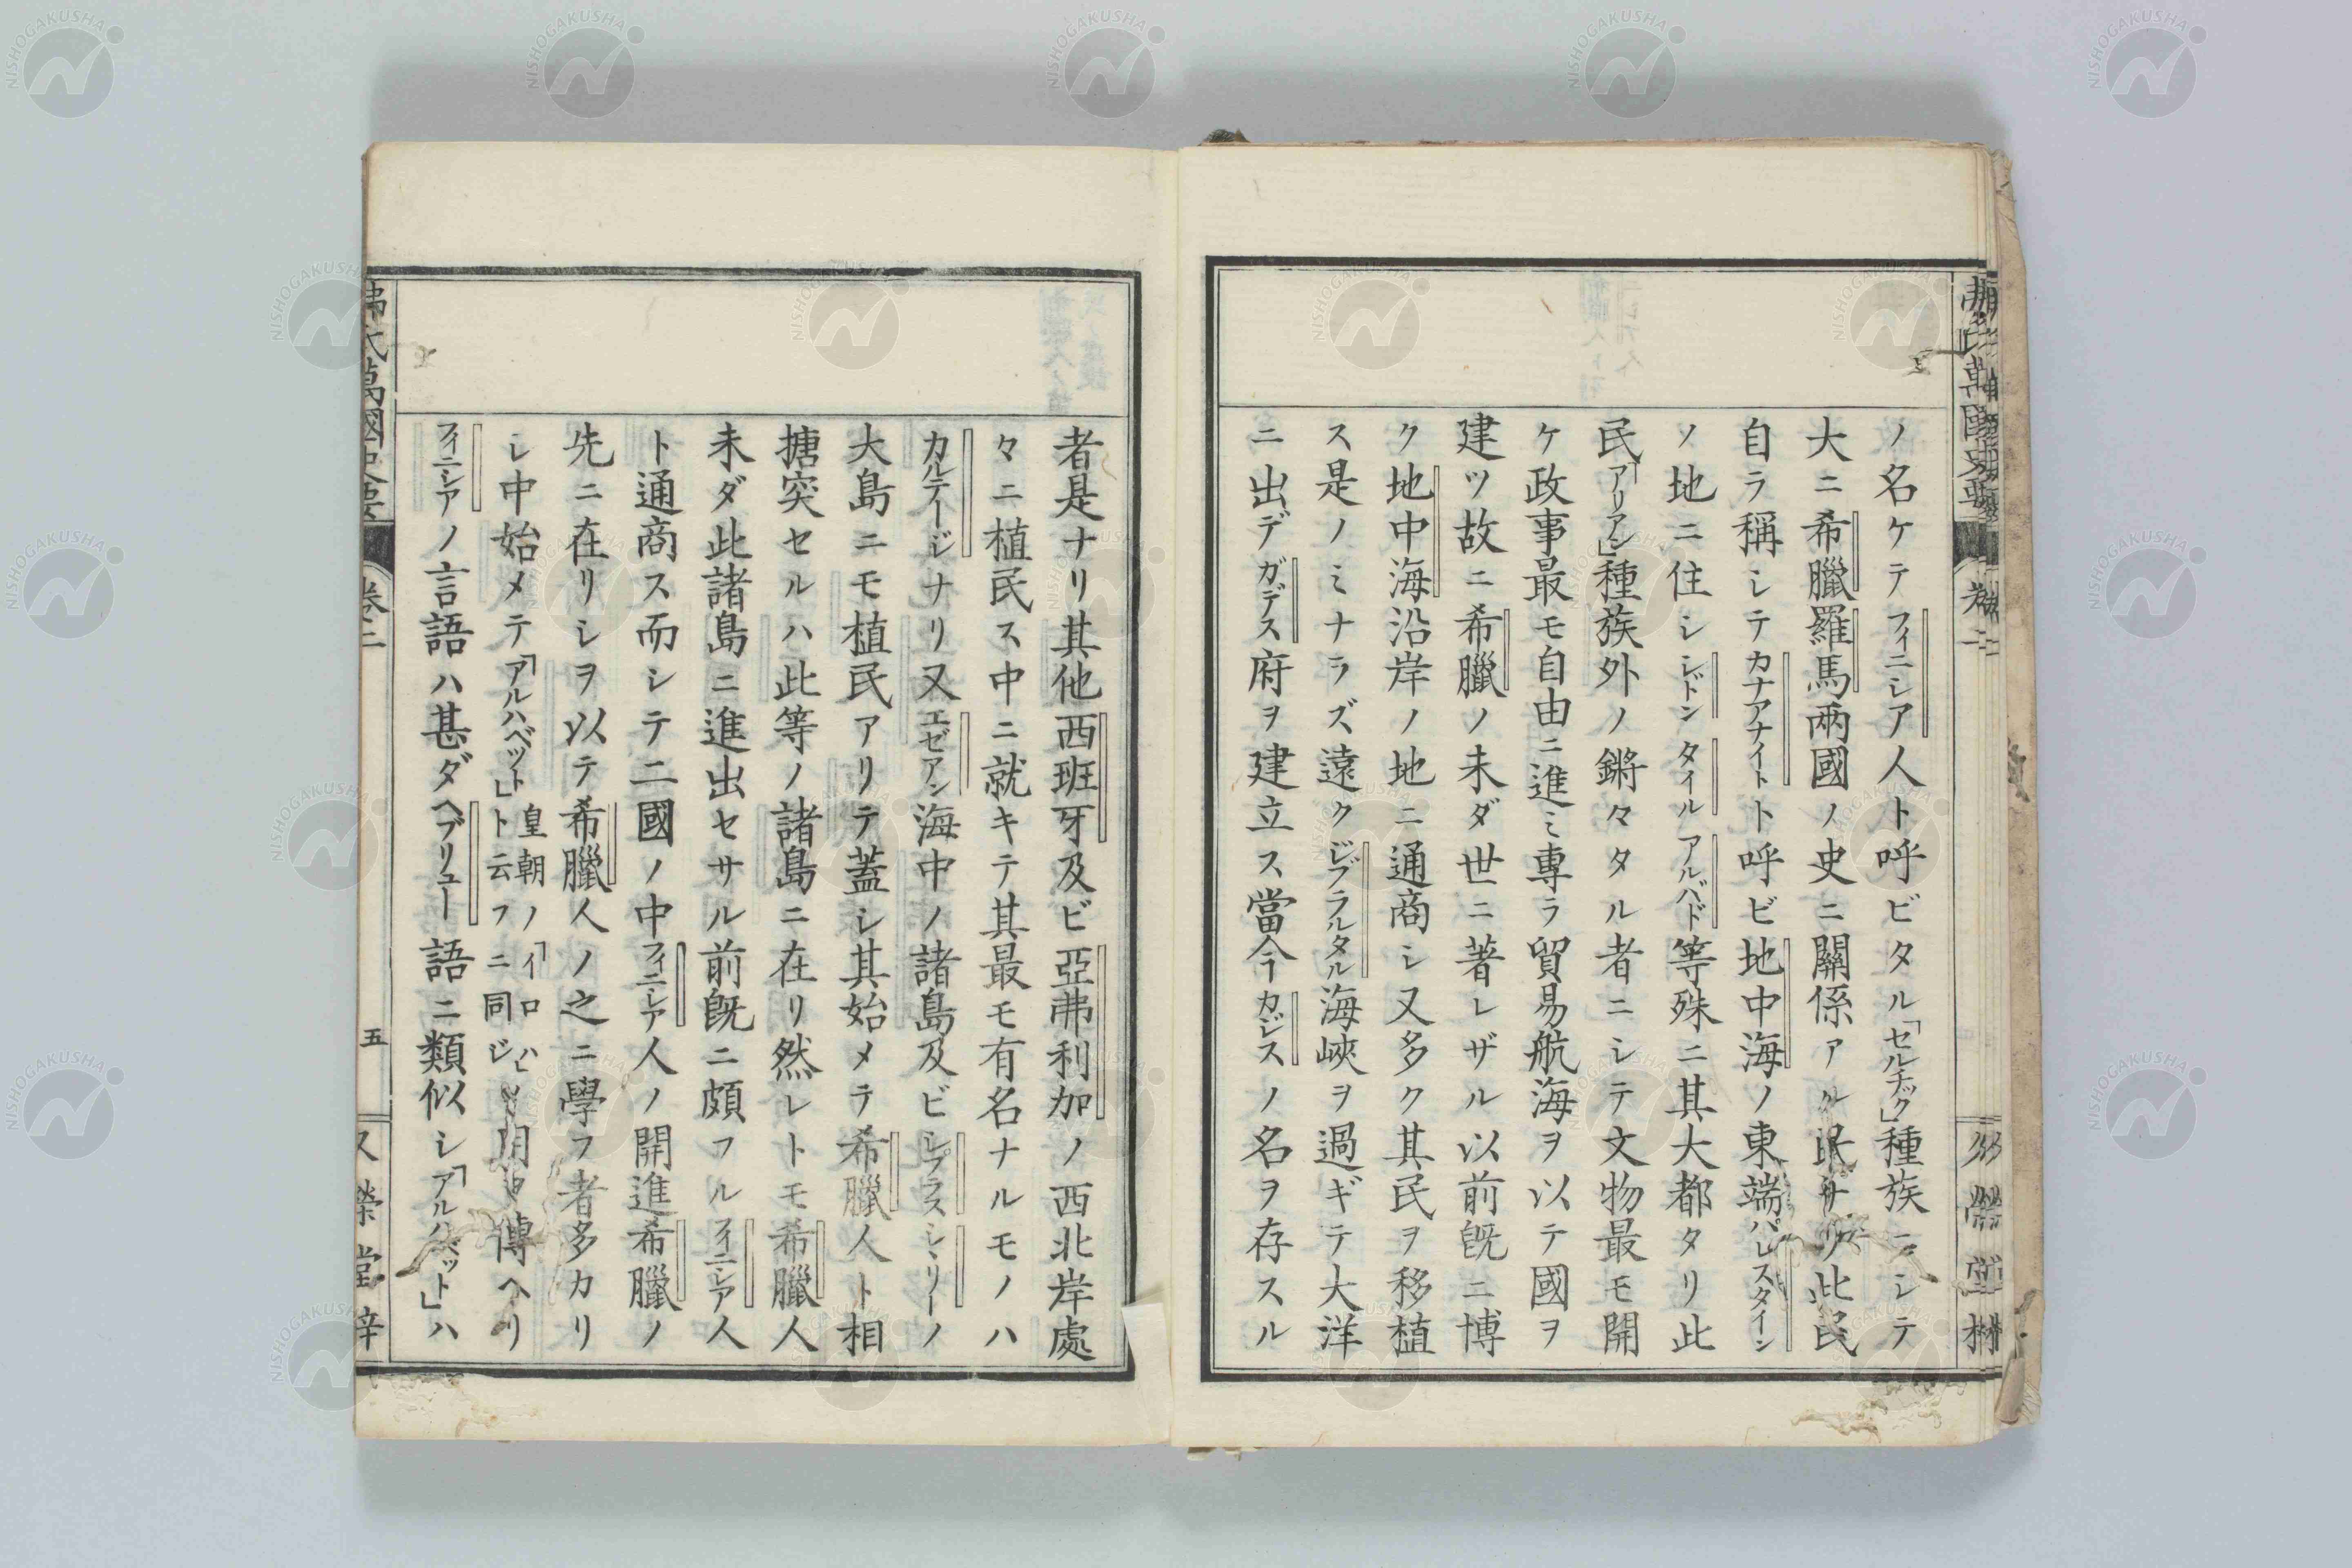 ノ名ケテフィニシア人ト呼ビタル「セルチック」種族ニシテ
大ニ希臘羅馬兩國ノ史ニ關係アル民ナリ此民
自ラ稱シテカナアナイトト呼ビ地中海ノ東端パレスタイン
ノ地ニ住シシドンタイルアルバド等殊ニ其大都タリ此
民「アリアン」種族外ノ鏘々タル者ニシテ文物最モ開
ケ政事最モ自由ニ進ミ專ラ貿易航海ヲ以テ國ヲ
建ツ故ニ希臘ノ未ダ世ニ著レザル以前既ニ博
ク地中海沿岸ノ地ニ通商シ又多ク其民ヲ移植
ス是ノミナラズ遠クジブラルタル海峽ヲ過ギテ大洋
ニ出デガデス府ヲ建立ス當今カジスノ名ヲ存スル
者是ナリ其他西班牙及ビ亞弗利加ノ西北岸處
々ニ植民ス中ニ就キテ其最モ有名ナルモノハ
カルテージナリ又エゼアン海中ノ諸島及ビシプラスシヽリーノ
大島ニモ植民アリテ蓋シ其始メテ希臘人ト相
搪突セルハ此等ノ諸島ニ在リ然レトモ希臘人
未ダ此諸島ニ進出セサル前既ニ頗フルフイニシア人
ト通商ス而シテ二國ノ中フィニシア人ノ開進希臘ノ
先ニ在リシヲ以テ希臘人ノ之ニ學フ者多カリ
シ中始メテ「アルハベット」ト云フ皇朝ノ「イロハ」ニ同ジ傳ヘリ
フィニシアノ言語ハ甚ダヘブリュー語ニ類似シ「アルハベット」ハ
弗氏萬國史要
卷二
五